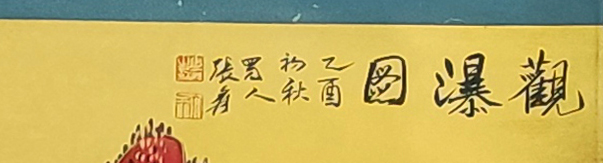 觀瀑圖
乙酉
初秋
蜀人
張爰